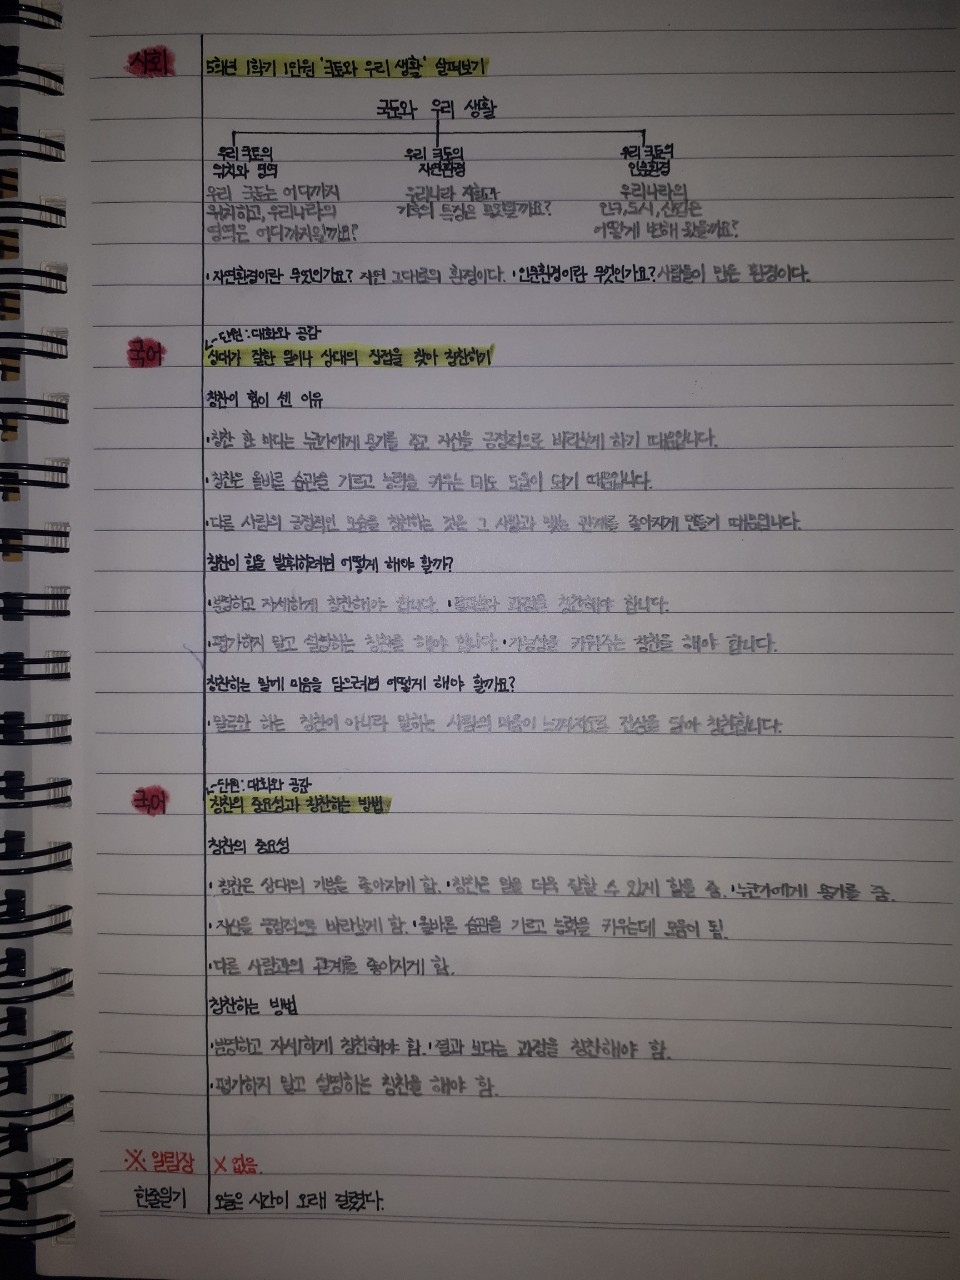 사회
5학년 1학기 1단원 '국토와 우리 생활' 살펴보기
국토와 우리 생활
우리 국토의 위치와 영역
우리 국토는 어디까지
위치하고, 우리나라의
영역은 어디까지일까요?
우리 국토의 자연환경
우리나라 지형과
기후의 특징은 무엇일까요?
우리 국토의 인문환경
우리나라의
인구, 도시, 산업은
어떻게 변해 왔을까요?
·자연환경이란 무엇인가요? 자연 그대로의 환경이다. ·인문환경이란 무엇인가요? 사람들이 만든 환경이다.
단원 : 대화와 공감
국어
상대가 잘한 일이나 상대의 장점을 찾아 칭찬하기
칭찬이 힘이 센 이유
·칭찬 한 마디는 누군가에게 용기를 주고 자신을 긍정적으로 바라보게 하기 때문입니다.
·칭찬은 올바른 습관을 기르고 능력을 키우는 데도 도움이 되기 때문입니다.
·다른 사람의 긍정적인 모습을 칭찬하는 것은 그 사람과 맺는 관계를 좋아지게 만들기 때문입니다.
칭찬이 힘을 발휘하려면 어떻게 해야 할까?
·분명하고 자세하게 칭찬해야 합니다. ·결과보다 과정을 칭찬해야 합니다.
·평가하지 말고 설명하는 칭찬을 해야 합니다. ·가능성을 키워주는 칭찬을 해야 합니다.
칭찬하는 말에 마음을 담으려면 어떻게 해야 할까요?
·말로만 하는 칭찬이 아니라 말하는 사람의 마음이 느껴지도록 진심을 담아 칭찬합니다.
단원 : 대화와 공감
국어
칭찬의 중요성과 칭찬하는 방법
칭찬의 중요성
·칭찬은 상대의 기분을 좋아지게 함. ·칭찬은 일을 더욱 잘할 수 있게 힘을 줌. ·누군가에게 용기를 줌.
·자신을 긍정적으로 바라보게 함. ·올바른 습관을 기르고 능력을 키우는데 도움이 됨.
·다른 사람과의 관계를 좋아지게 함.
칭찬하는 방법
·분명하고 자세하게 칭찬해야 함. ·결과 보다는 과정을 칭찬해야 함.
·평가하지 말고 설명하는 칭찬을 해야 함.
※ 알림장 X 없음.
한줄일기 오늘은 시간이 오래 걸렸다.